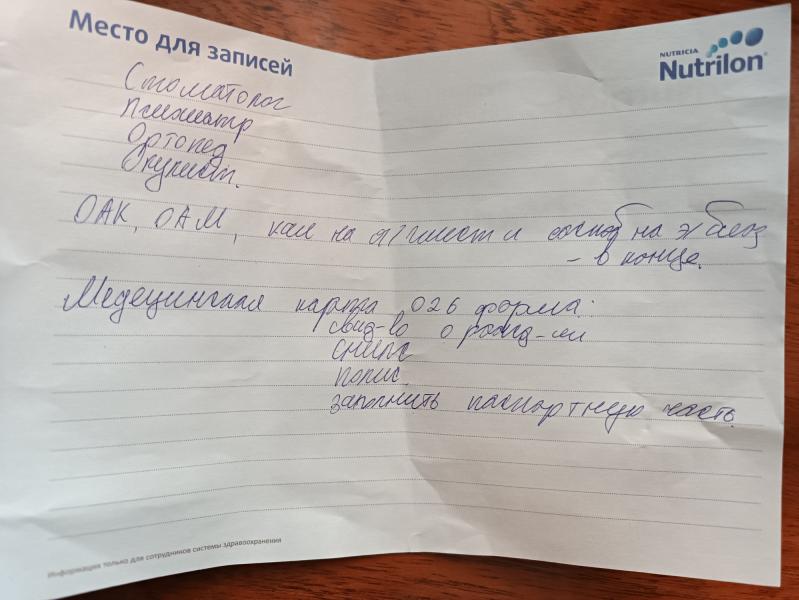 Место для записей
NUTRICIA
Nutrilon®
Стоматолог
Психиатр
Ортопед
Окулист.
ОАК, ОАМ, кал на я/глист и соскоб на э/биоз
- в конце.
Медецинская карта 026 форма:
свид-во о рожд-ии
снилс
полис
заполнить паспортную часть.
Информация только для сотрудников системы здравоохранения